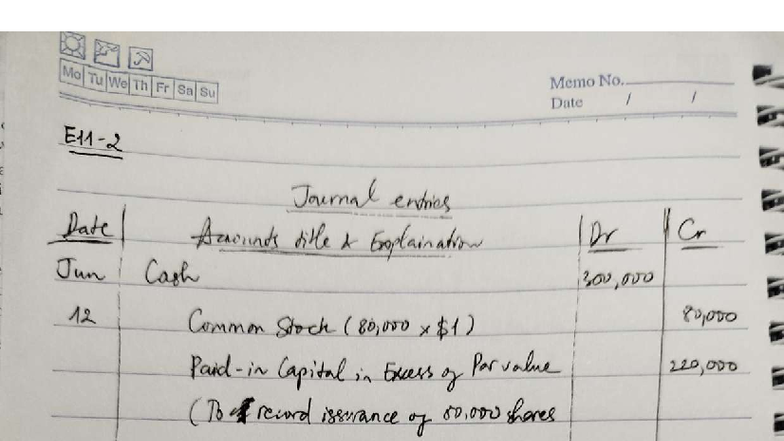 Mo Tu We Th Fr Sa Su
Memo No.
Date / /
E11-2
Journal entries
Date Accounts title & Explaination Dr Cr
Jun Cash 300,000
12 Common Stock (80,000 x $1) 80,000
Paid-in Capital in Excess of Par value 220,000
(To record issurance of 80,000 shares